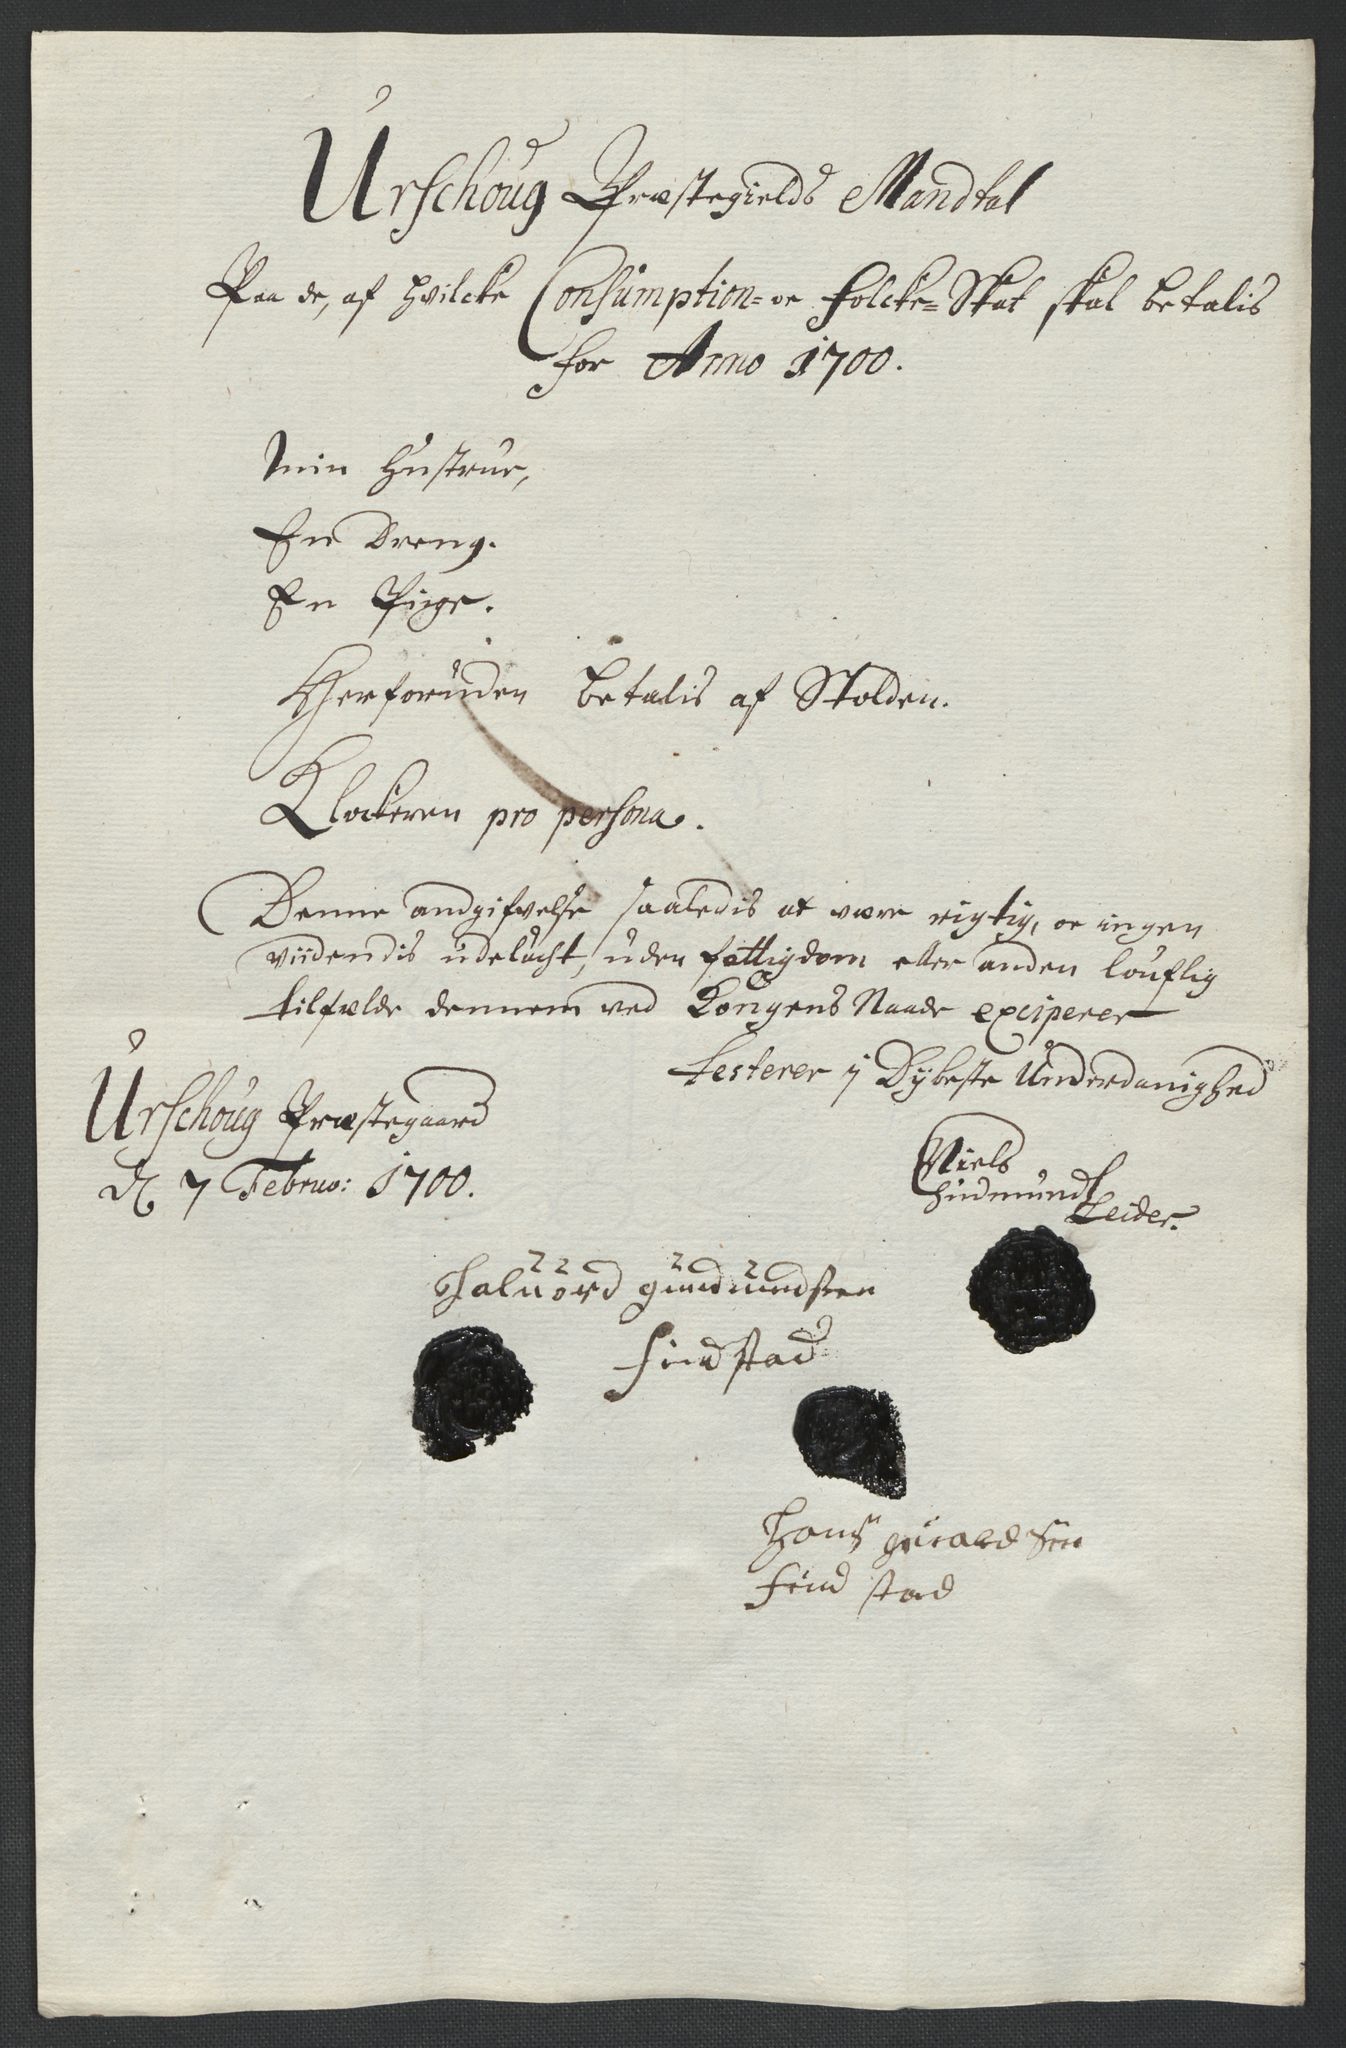 Urschoug Præstegields Mandtal
Paa de, af hvilcke Consumption= oc Folcke= Skat skal betalis
for Anno 1700.
Min Hustrue,
En Dreng.
En Pige.
Herforuden betalis af Skolden.
Klockeren pro persona.
Denne andgifvelse saaledis at være rigtig, oc ingen
viidendis udelucht, uden fattigdom eller anden louflig
tilfælde dennem ved Kongens Naade exciperer
testerer j Dybeste Underdanighed
Urschoug Præstegaard
d 7 Februo: 1700.
Niels
Leider.
Haluord gundundsen
findstad
Hans
find stad